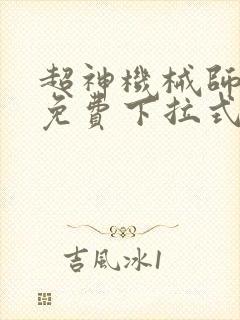 超神機械師
免費下拉式
吉風冰1